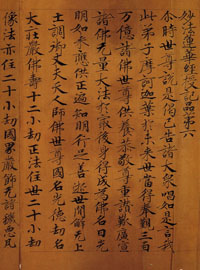 妙法蓮華經授記品第六
尒時世尊說是偈已告諸大衆唱如是言我
此弟子摩訶迦葉於未來世當得奉覲三百
万億諸佛世尊供養恭敬尊重讚歎廣宣
諸佛無量大法於最後身得成爲佛名曰光
明如來應供正遍知明行足善逝世間解無上
士調御丈夫天人師佛世尊國名光德劫名
大莊嚴佛壽十二小劫正法住世二十小劫
像法亦住二十小劫國界嚴飾無諸穢惡瓦